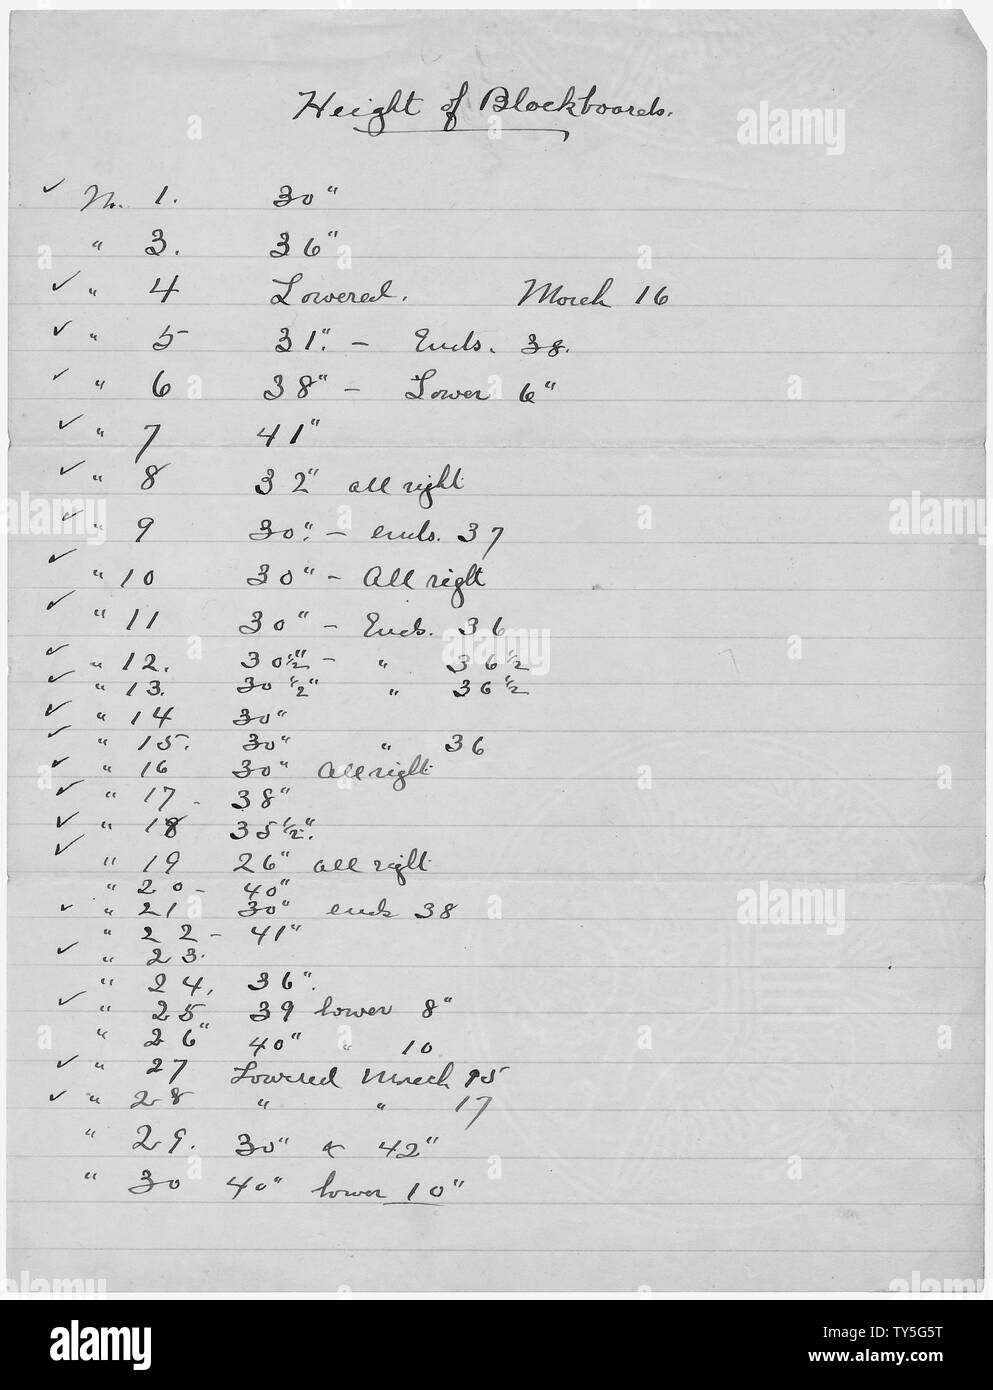 Height of Blackboards.
✓ No. 1. 30"
" 3. 36"
✓ " 4 Lowered. March 16
✓ " 5 31". - Ends. 38.
✓ " 6 38" - Lower 6"
✓ " 7 41"
✓ " 8 32" all right
✓ " 9 30". - ends. 37
✓ " 10 30" - All right
✓ " 11 30" - Ends. 36
✓ " 12. 30½" - " 36½
✓ " 13. 30½" " 36½
✓ " 14 30"
✓ " 15. 30" " 36
✓ " 16 30" All right
✓ " 17 - 38"
✓ " 18 35½".
✓ " 19 26" all right
" 20 - 40"
✓ " 21 30" ends 38
" 22 - 41"
✓ " 23.
" 24. 36".
✓ " 25 39 lower 8"
" 26" 40" " 10
✓ " 27 Lowered March 15
✓ " 28 " " 17
" 29. 30" & 42"
" 30 40" lower 10"
alamy
Image ID: TY5G5T
www.alamy.com